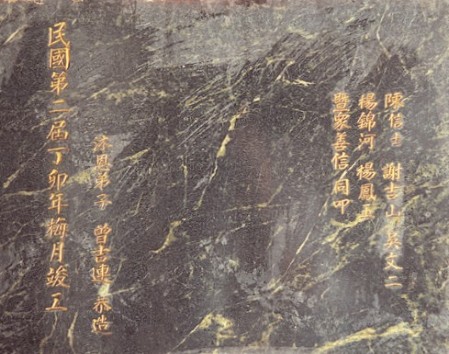 陳信士 謝吉山 英文二
楊錦河 楊鳳玉
豊眾善信 同叩
沐恩弟子 曾吉連 恭造
民國第二屆丁卯年梅月竣工